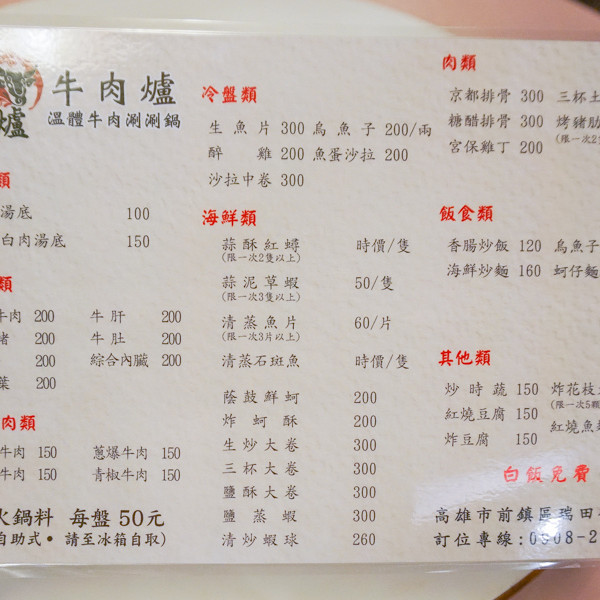 爐
牛肉爐
溫體牛肉涮涮鍋
類
湯底 100
白肉湯底 150
類
牛肉 200 牛肝 200
豬 200 牛肚 200
200 綜合內臟 200
葉 200
肉類
牛肉 150 蔥爆牛肉 150
牛肉 150 青椒牛肉 150
火鍋料 每盤 50元
自助式• 請至冰箱自取)
冷盤類
生魚片 300 烏魚子 200/兩
醉雞 200 魚蛋沙拉 200
沙拉中卷 300
海鮮類
蒜酥紅蟳 時價/隻
(限一次2隻以上)
蒜泥草蝦 50/隻
(限一次3隻以上)
清蒸魚片 60/片
(限一次3片以上)
清蒸石斑魚 時價/隻
蔭鼓鮮蚵 200
炸蚵酥 200
生炒大卷 300
三杯大卷 300
鹽酥大卷 300
鹽蒸蝦 300
清炒蝦球 260
肉類
京都排骨 300 三杯土
糖醋排骨 300 烤豬肋
(限一次2
宮保雞丁 200
飯食類
香腸炒飯 120 烏魚子
海鮮炒麵 160 蚵仔麵
其他類
炒時蔬 150 炸花枝
(限一次5顆
紅燒豆腐 150 紅燒魚
炸豆腐 150
白飯免費
高雄市前鎮區瑞田
訂位專線:0908-2